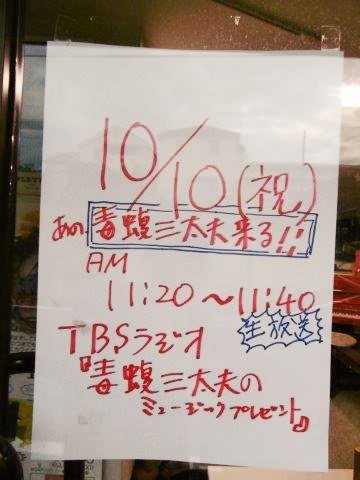 10/10(祝)
あの 毒蝮三太夫来る!!
AM
11:20〜11:40
生放送
TBSラジオ
『毒蝮三太夫の
ミュージックプレゼント』